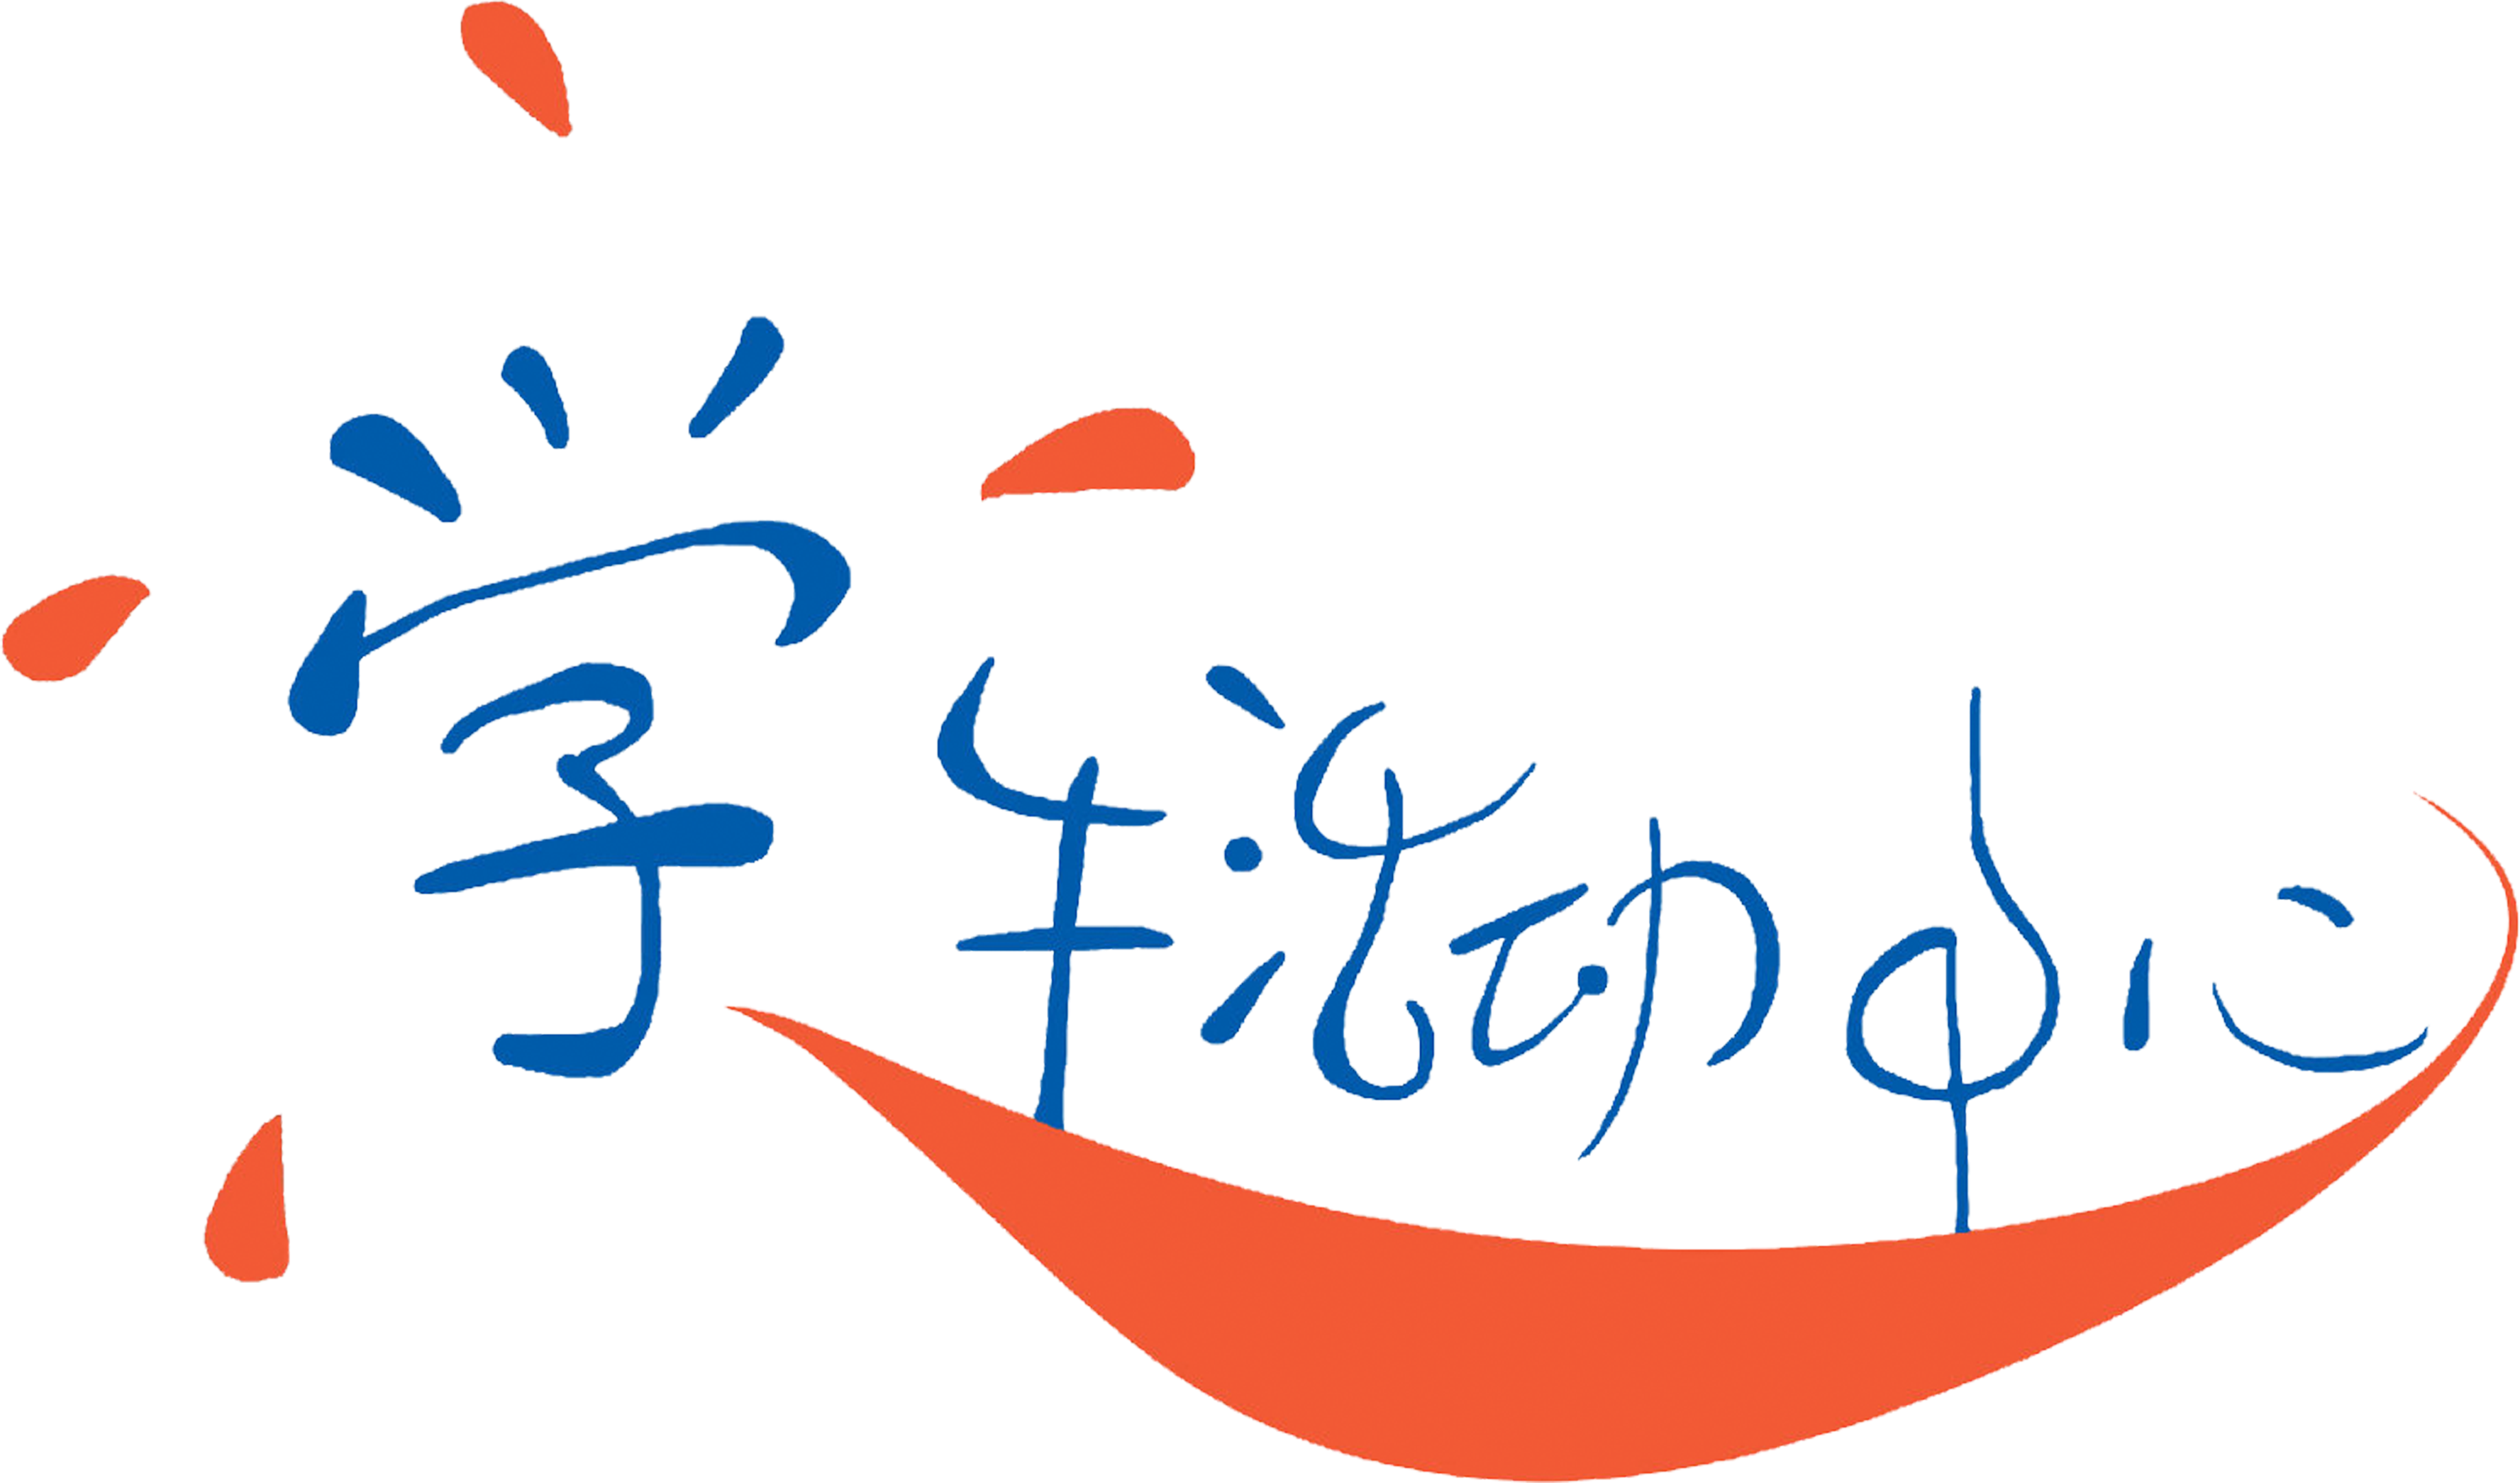 学生活动中心